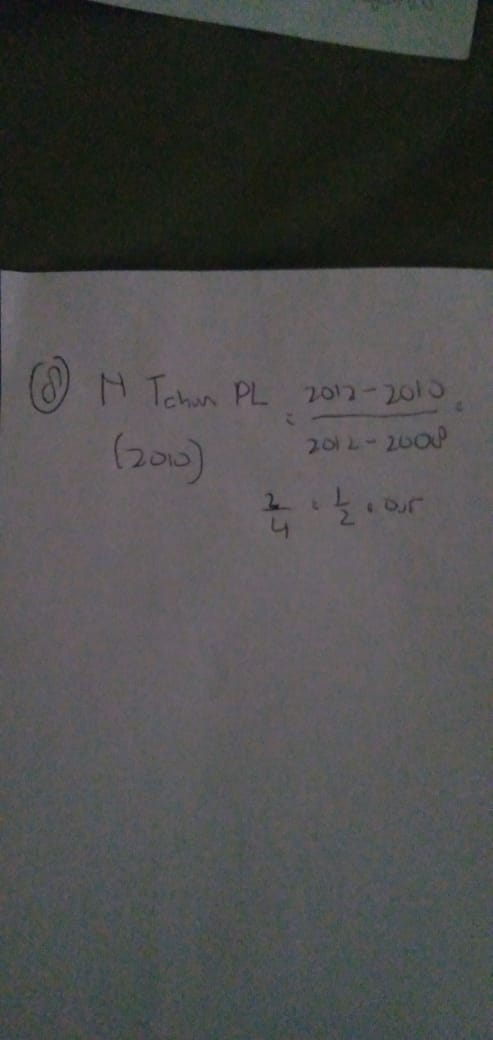 8 M Tchan PL = 2012-2010 =
(2010) 2012-2008
2/4 = 1/2 = 0,5